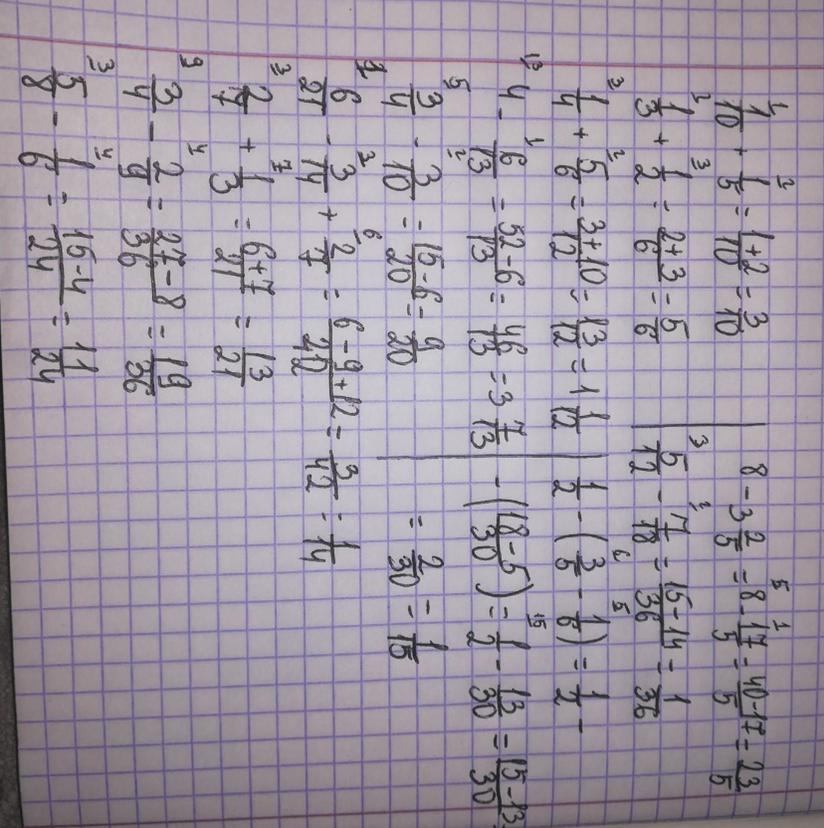 1/10 + 1/5 = 1+2/10 = 3/10
1/3 + 1/2 = 2+3/6 = 5/6
1/4 + 5/6 = 3+10/12 = 13/12 = 1 1/12
4 - 6/13 = 52-6/13 = 46/13 = 3 7/13
3/4 - 3/10 = 15-6/20 = 9/20
6/21 - 3/14 + 2/7 = 6-9+12/42 = 3/42 = 1/14
2/7 + 1/3 = 6+7/21 = 13/21
3/4 - 2/9 = 27-8/36 = 19/36
5/8 - 1/6 = 15-4/24 = 11/24
8 - 3 2/5 = 8 - 17/5 = 40-17/5 = 23/5
5/12 - 7/18 = 15-14/36 = 1/36
1/2 - (3/5 - 1/6) = 1/2 -
- (18-5/30) = 1/2 - 13/30 = 15-13/30
= 2/30 = 1/15